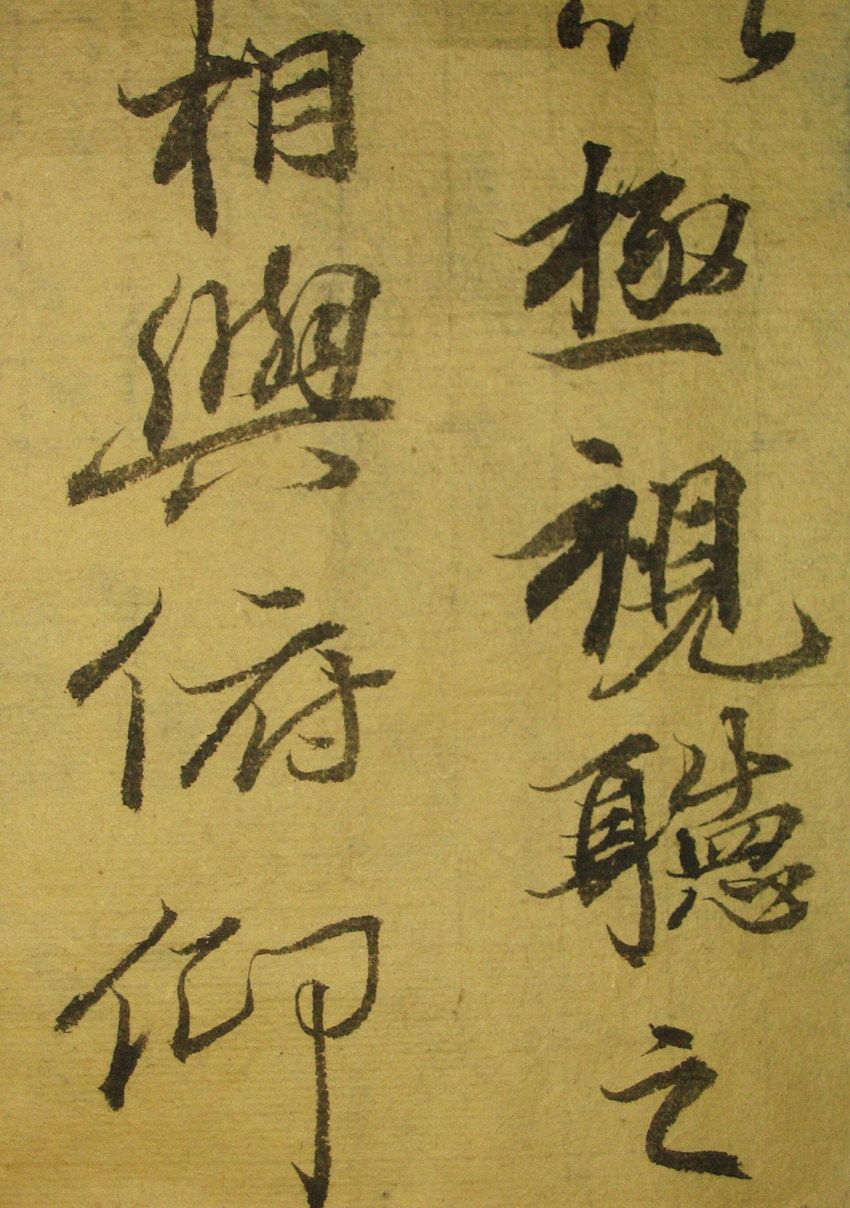 以極視聽之
相與俯仰